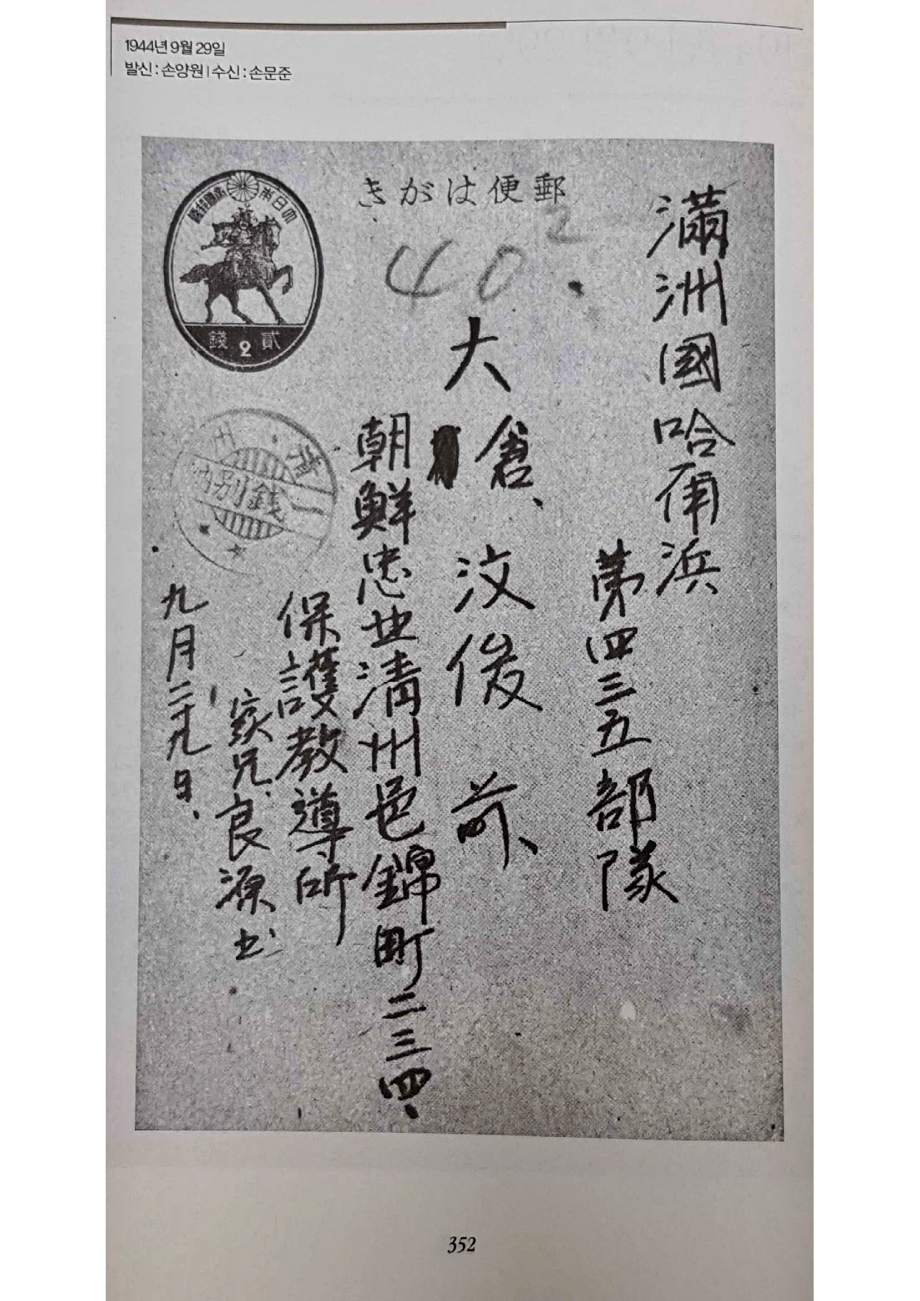 1944년 9월 29일
발신 : 손양원 | 수신 : 손문준
きがは便郵
40²
貳 2 錢
滿洲國哈甫浜
第四三五部隊
大倉、汶俊 前、
朝鮮忠北清州邑錦町二三四、
保護教導所
家兄、良源書
九月二十九日、
別錢
352